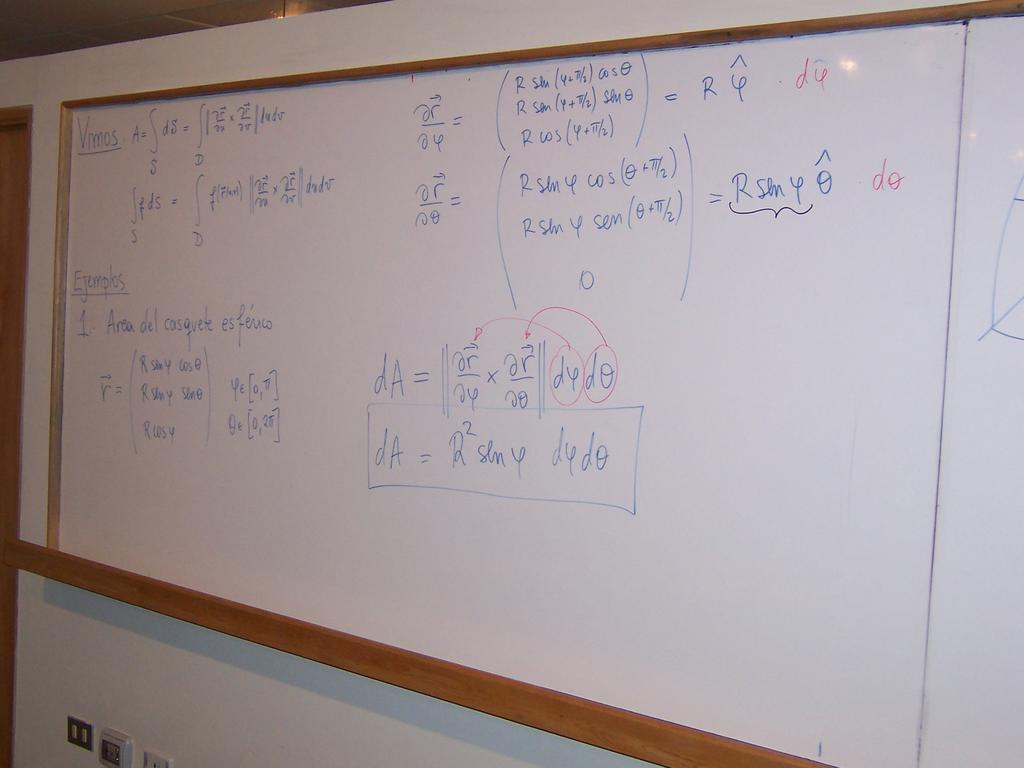 Vimos A = ∫_S dS = ∫_D ‖∂r⃗/∂u × ∂r⃗/∂v‖ du dv
∫_S f dS = ∫_D f(r⃗(u,v)) ‖∂r⃗/∂u × ∂r⃗/∂v‖ du dv
Ejemplos
1. Area del casquete esférico
r⃗ = ( R sen φ cos θ
R sen φ sen θ
R cos φ )
φ ∈ [0, π]
θ ∈ [0, 2π]
∂r⃗/∂φ = ( R sen (φ+π/2) cos θ
R sen (φ+π/2) sen θ
R cos (φ+π/2) ) = R φ̂ · dφ
∂r⃗/∂θ = ( R sen φ cos (θ+π/2)
R sen φ sen (θ+π/2)
0 ) = R sen φ θ̂ · dθ
dA = ‖∂r⃗/∂φ × ∂r⃗/∂θ‖ dφ dθ
dA = R² sen φ dφ dθ